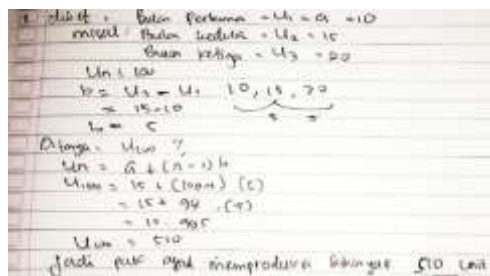 1 diket : Bulan Pertama = U1 = a = 10
misal : Bulan kedua = U2 = 15
Bulan ketiga = U3 = 20
Un : 100
b = U2 - U1 10, 15, 20
= 15-10 5 5
b = 5
Ditanya = U100 ?
Un = a + (n-1) b
U100 = 15 + (100-1) (5)
= 15 + 94 . (5)
= 10
U100 = 510
Jadi memproduksi sebanyak 510 unit